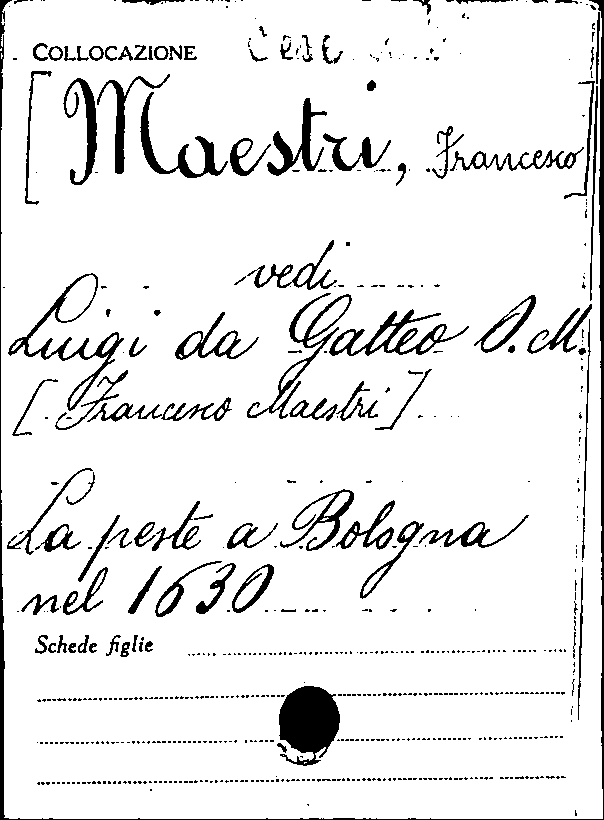 COLLOCAZIONE
[Maestri, Francesco]
vedi
Luigi da Gatteo O.M.
[Francesco Maestri]
La peste a Bologna
nel 1630
Schede figlie